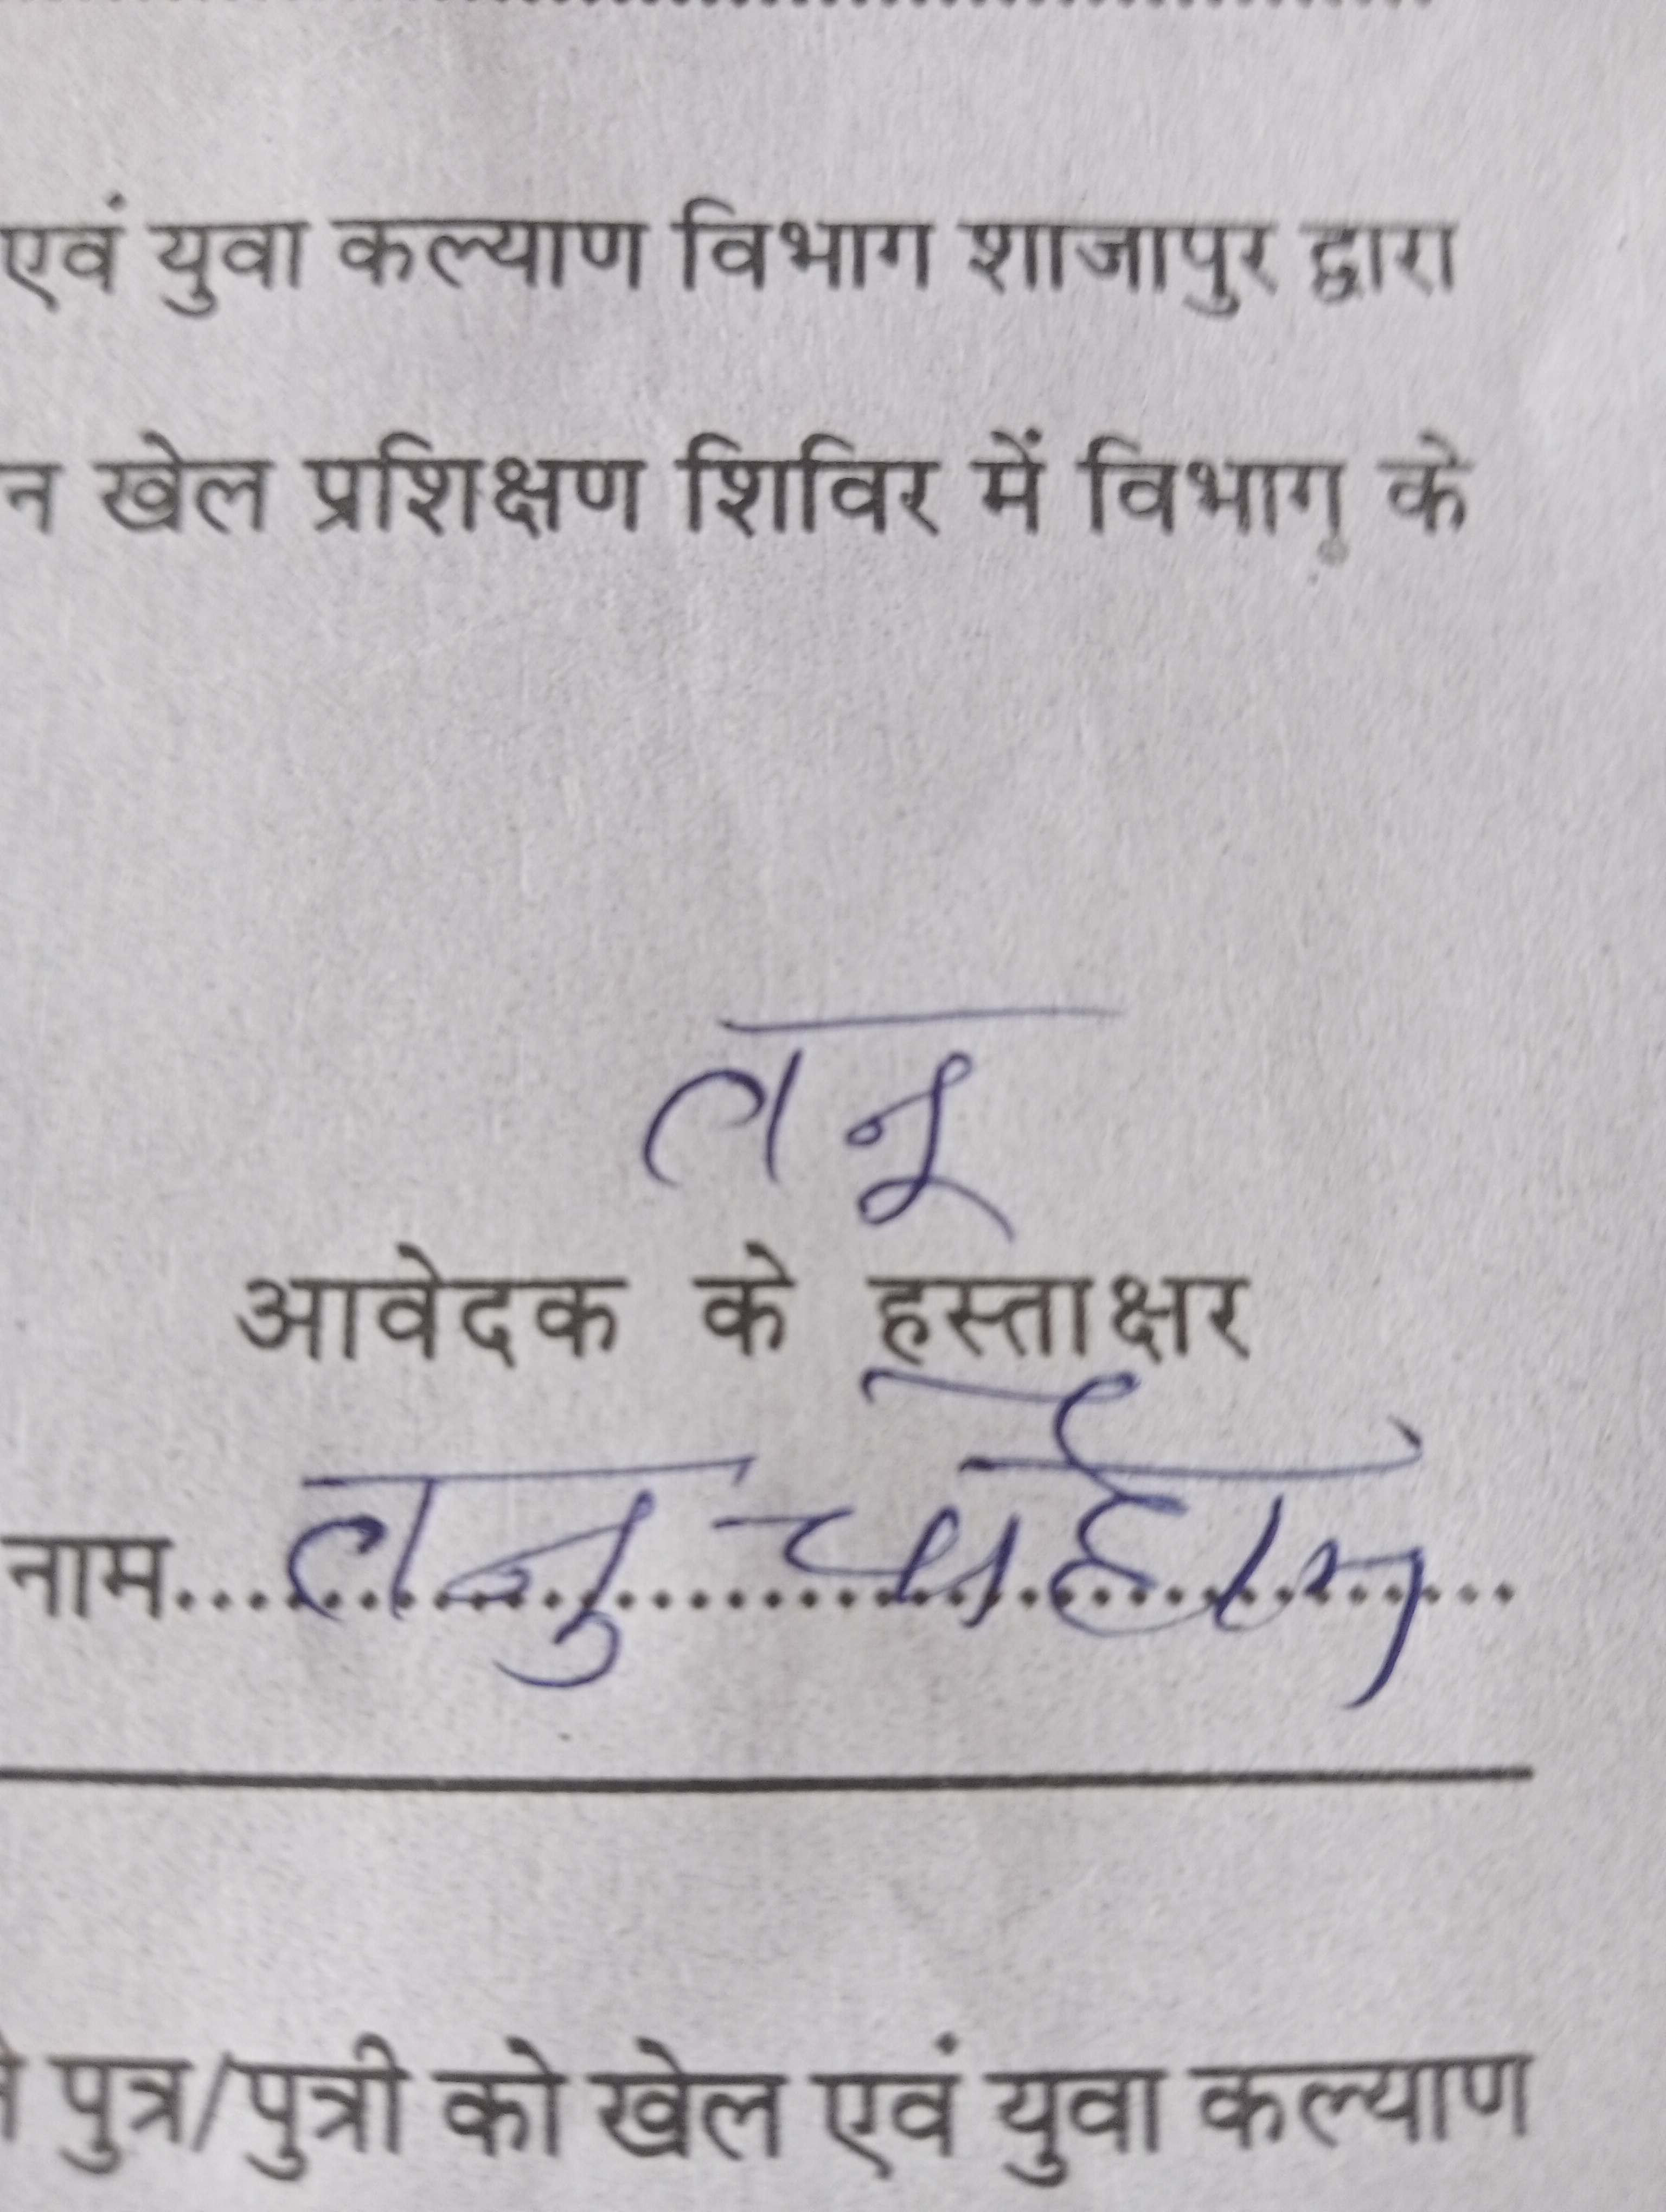 एवं युवा कल्याण विभाग शाजापुर द्वारा
न खेल प्रशिक्षण शिविर में विभाग के
तनू
आवेदक के हस्ताक्षर
नाम.... तनु चौहान
पुत्र/पुत्री को खेल एवं युवा कल्याण